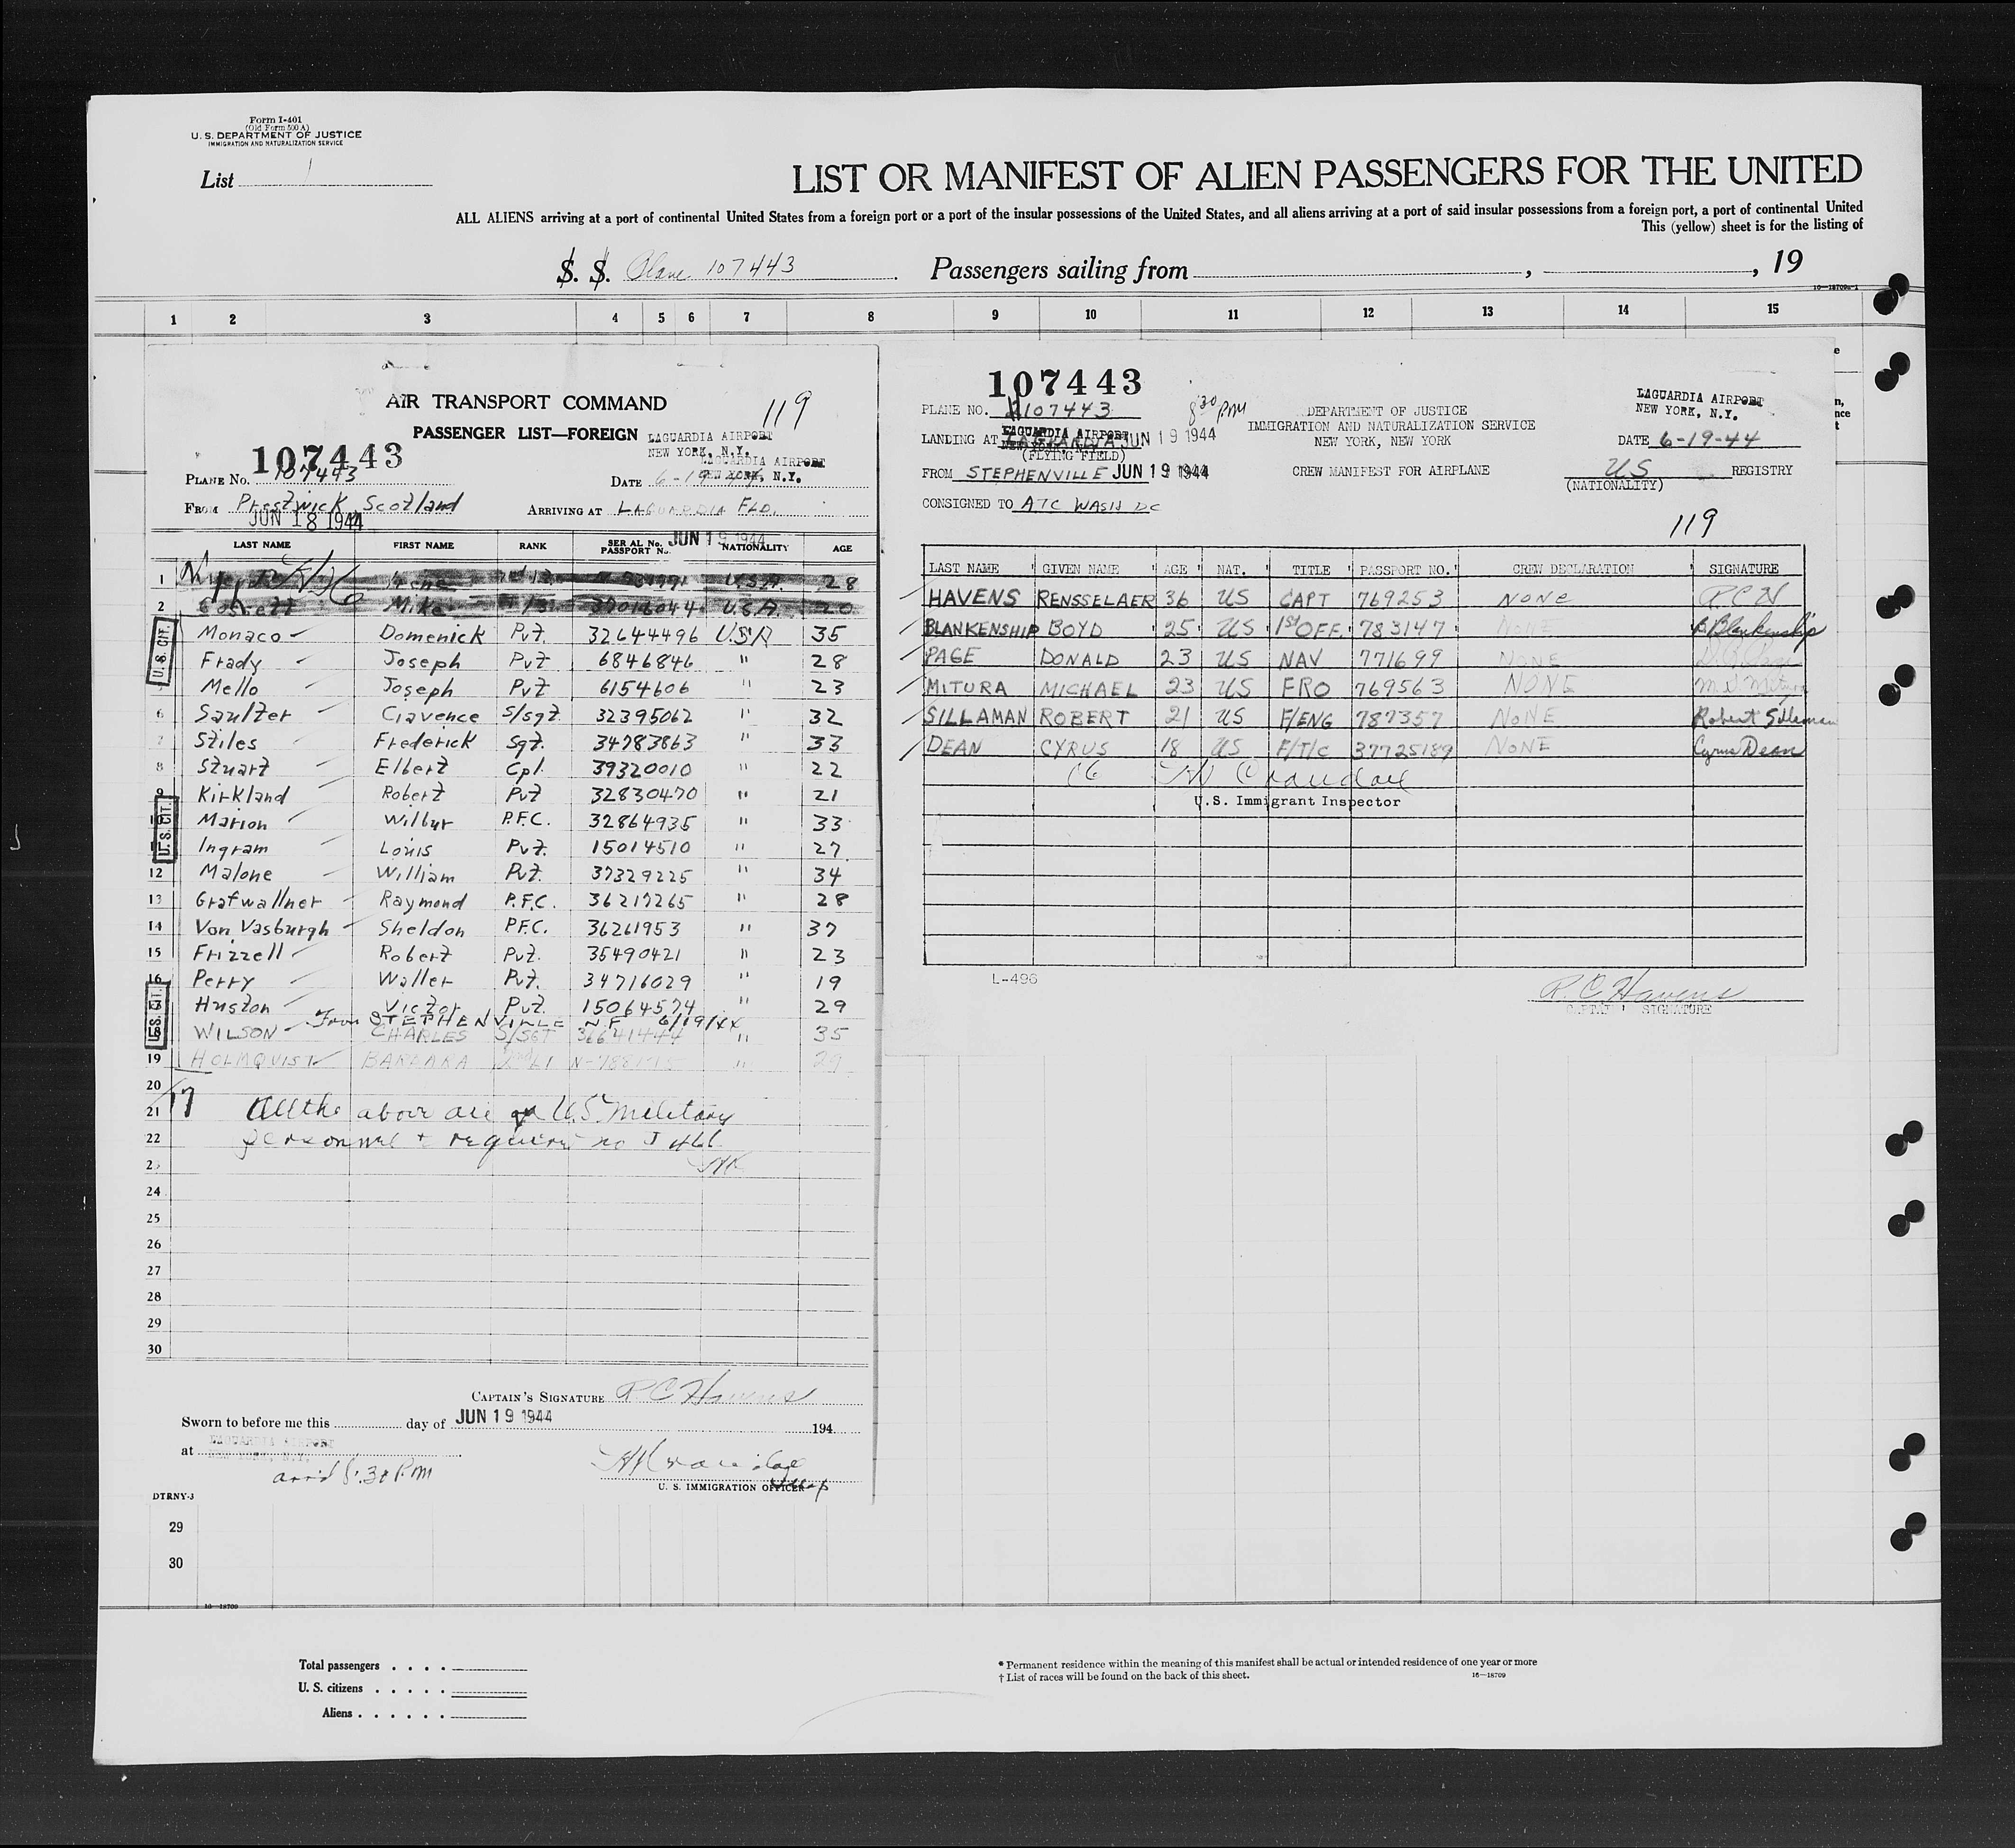 Form I-401
(Old Form 500 A)
U. S. DEPARTMENT OF JUSTICE
IMMIGRATION AND NATURALIZATION SERVICE
List 1
LIST OR MANIFEST OF ALIEN PASSENGERS FOR THE UNITED
ALL ALIENS arriving at a port of continental United States from a foreign port or a port of the insular possessions of the United States, and all aliens arriving at a port of said insular possessions from a foreign port, a port of continental United
This (yellow) sheet is for the listing of
S. S. Plane 107443 Passengers sailing from , , 19
16—18709a-1
1 2 3 4 5 6 7 8 9 10 11 12 13 14 15
AIR TRANSPORT COMMAND
119
PASSENGER LIST—FOREIGN
LAGUARDIA AIRPORT
NEW YORK, N.Y.
LAGUARDIA AIRPORT
NEW YORK, N.Y.
107443
PLANE No. 107443
DATE 6-19-44
FROM Prestwick, Scotland
JUN 18 1944
ARRIVING AT LAGUARDIA FLD.
JUN 19 1944
LAST NAME FIRST NAME RANK SERIAL No. PASSPORT No. NATIONALITY AGE
1 Irene U.S.A. 28
2 Mike 37016044 U.S.A. 20
Monaco Domenick Pvt. 32644496 USA 35
Frady Joseph Pvt 6846846 " 28
Mello Joseph Pvt 6154606 " 23
6 Saulter Clavence S/sgt. 32395062 " 32
7 Stiles Frederick Sgt. 34783863 " 33
8 Stuart Elbert Cpl. 39320010 " 22
9 Kirkland Robert Pvt 32830470 " 21
10 Marion Wilbur P.F.C. 32864935 " 33
Ingram Louis Pvt. 15014510 " 27
12 Malone William Pvt. 37329225 " 34
13 Grafwallner Raymond P.F.C. 36217265 " 28
14 Von Vasburgh Sheldon P.F.C. 36261953 " 37
15 Frizzell Robert Pvt. 35490421 " 23
16 Perry Walter Pvt. 34716029 " 19
Huston Victor Pvt. 15064574 " 29
From STEPHENVILLE N F 6/19/44
18 WILSON CHARLES S/SGT 36641444 " 35
19 HOLMQUIST BARBARA 2nd Lt " 29
U.S. CIT.
U.S. CIT.
U.S. CIT.
20
17
21 All the above are U.S. military
22 personnel + require no I 466
23
24
25
26
27
28
29
30
CAPTAIN'S SIGNATURE R C Havens
Sworn to before me this day of JUN 19 1944 194
at LAGUARDIA AIRPORT
NEW YORK, N.Y.
arr'd 8:30 P.M
U. S. IMMIGRATION OFFICER
DTRNY-3
29
30
16—18709
107443
PLANE NO. 107443
8 30 PM
LANDING AT LAGUARDIA JUN 19 1944
LAGUARDIA AIRPORT
(FLYING FIELD)
FROM STEPHENVILLE JUN 19 1944
CONSIGNED TO ATC WASH DC
DEPARTMENT OF JUSTICE
IMMIGRATION AND NATURALIZATION SERVICE
NEW YORK, NEW YORK
CREW MANIFEST FOR AIRPLANE
LAGUARDIA AIRPORT
NEW YORK, N.Y.
DATE 6-19-44
US REGISTRY
(NATIONALITY)
119
LAST NAME GIVEN NAME AGE NAT. TITLE PASSPORT NO. CREW DECLARATION SIGNATURE
HAVENS RENSSELAER 36 US CAPT 769253 NONE R C H
BLANKENSHIP BOYD 25 US 1st OFF. 783147 NONE B Blankenship
PAGE DONALD 23 US NAV 771699 NONE
MITURA MICHAEL 23 US FRO 769563 NONE M S Mitura
SILLAMAN ROBERT 21 US F/ENG 787357 NONE Robert Sillaman
DEAN CYRUS 18 US F/T/C 37725189 NONE Cyrus Dean
U.S. Immigrant Inspector
L-496
R. C. Havens
CAPTAIN'S SIGNATURE
Total passengers . . . .
U. S. citizens . . . . .
Aliens . . . . . .
* Permanent residence within the meaning of this manifest shall be actual or intended residence of one year or more
† List of races will be found on the back of this sheet.
16—18709